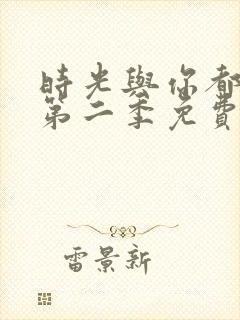 時光與你都
第二季免費
雷景新